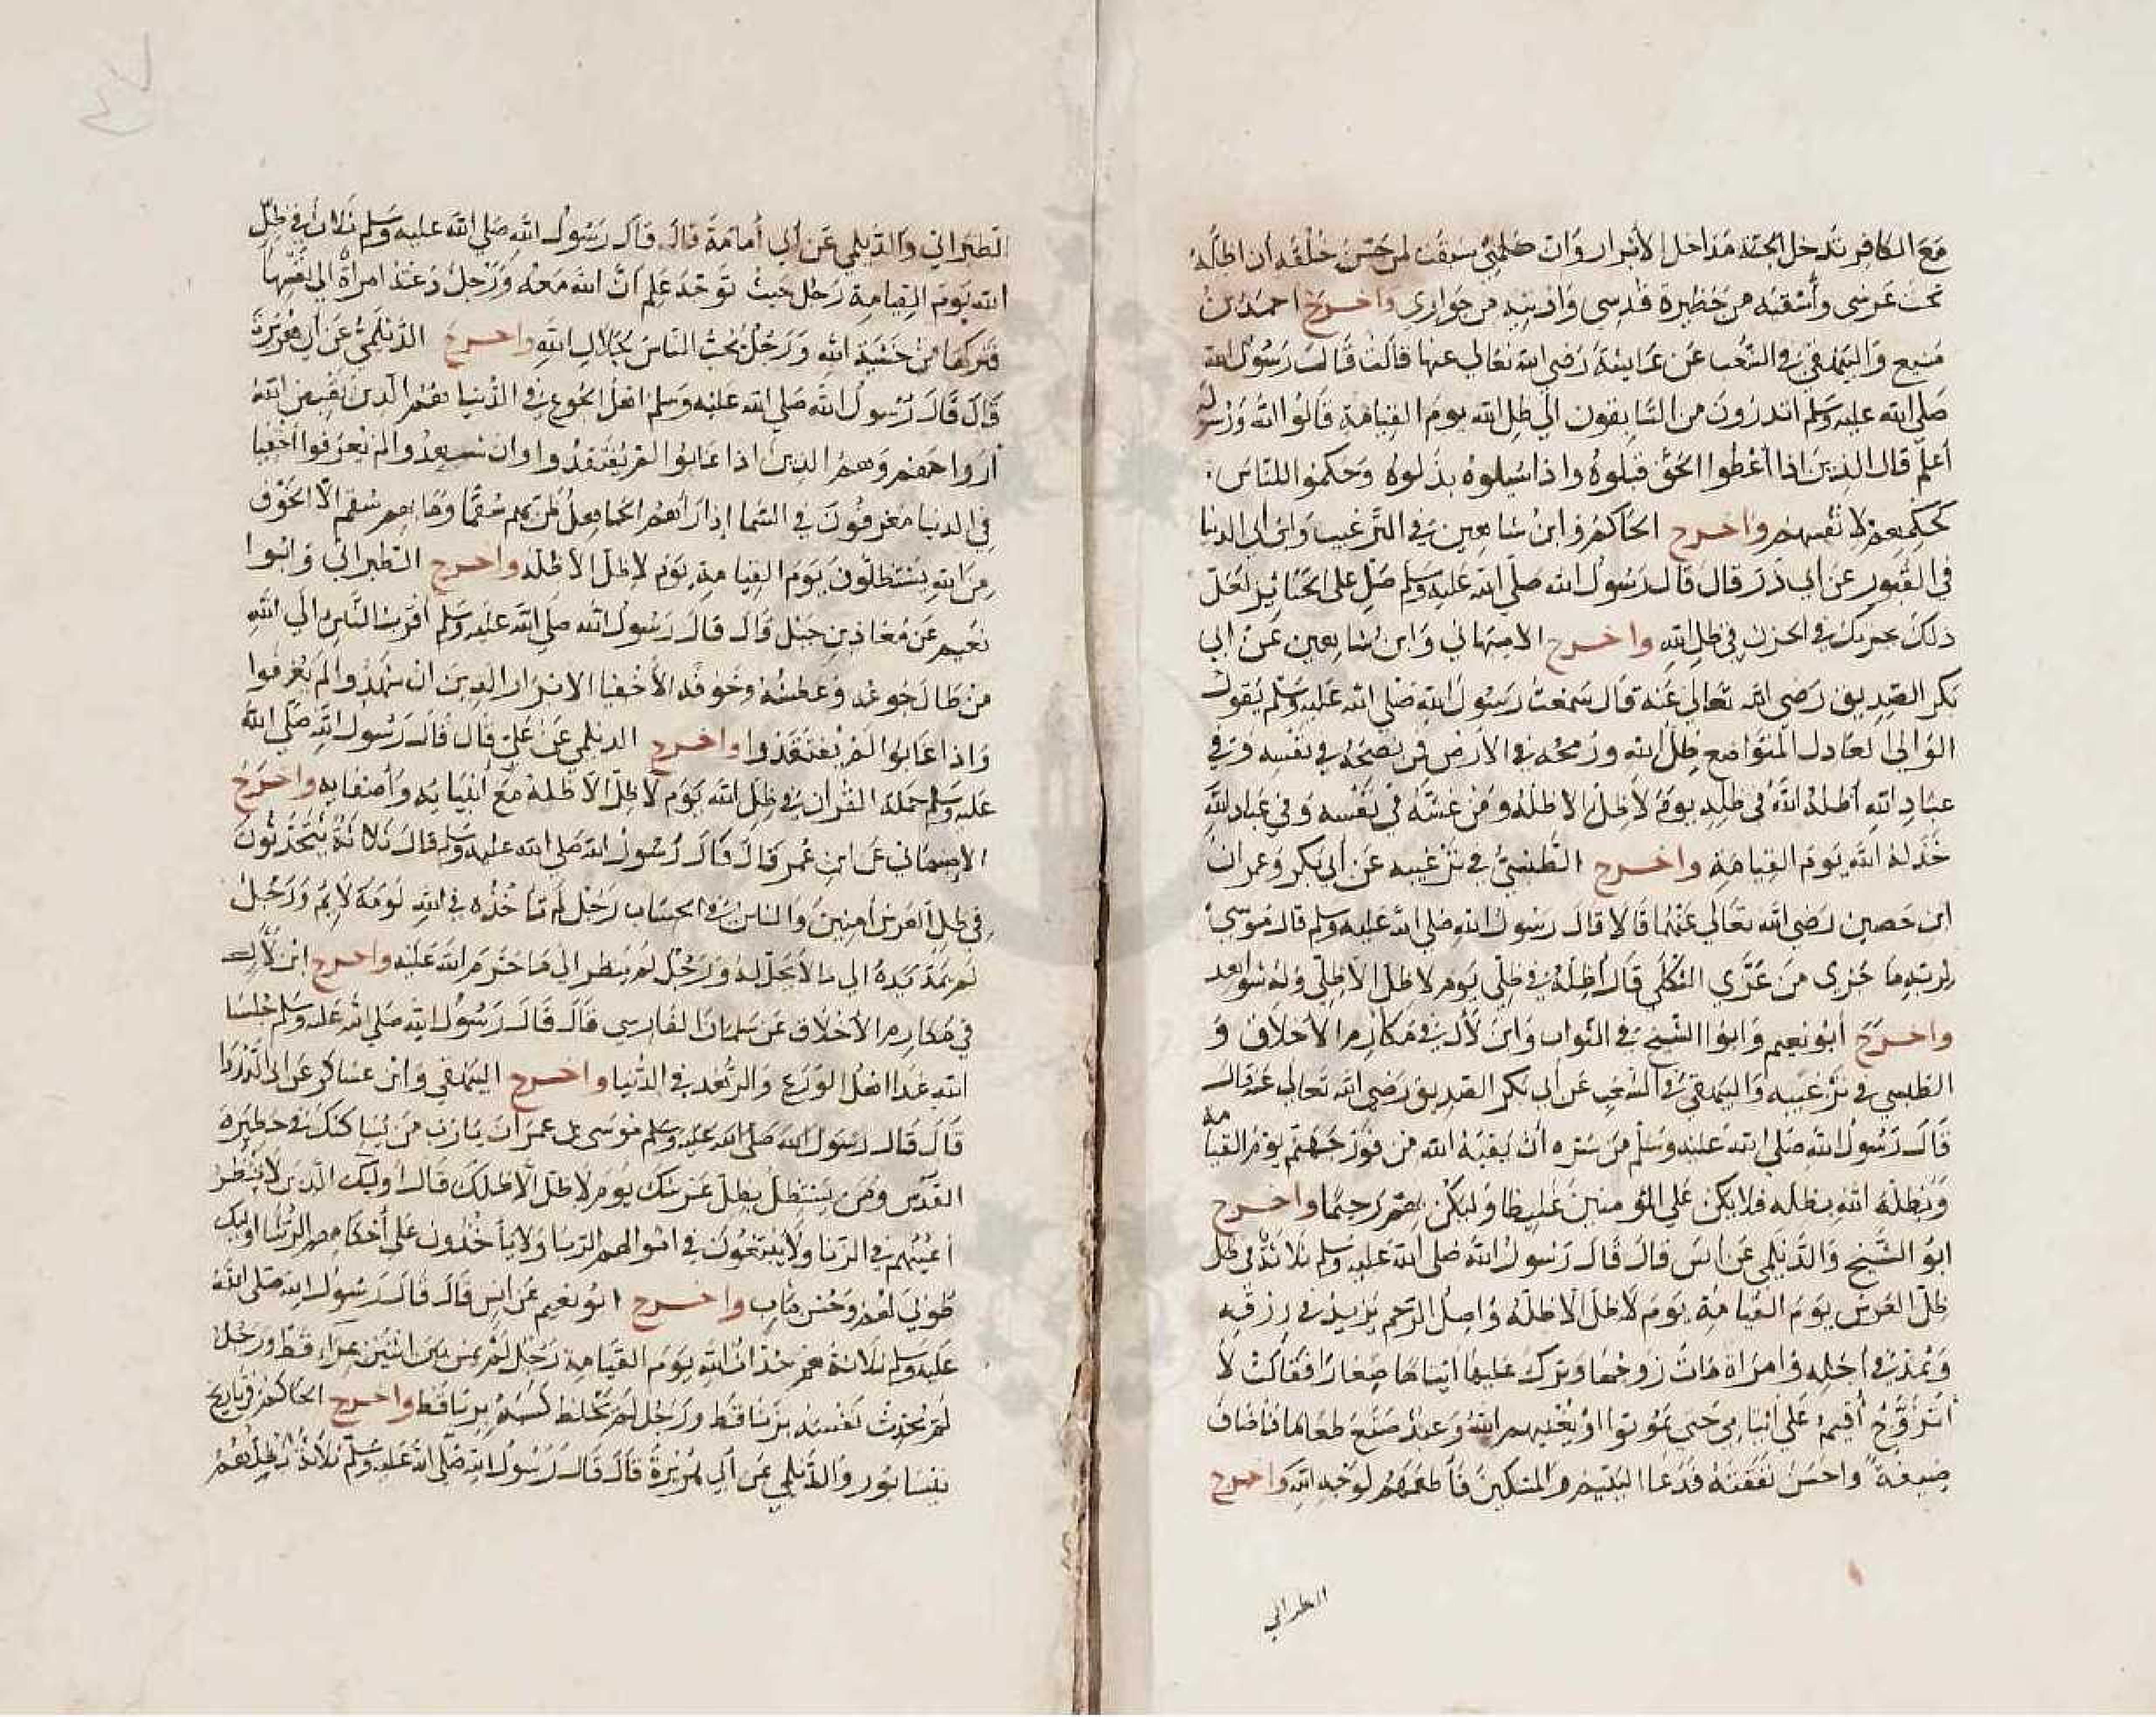 مع الكافر تدخل الجنة مداخل الأبرار وان كلمتي سبقت لمن حسن خلقه ان اظله
تحت عرشي وأسقيه من حظيرة قدسي وادنيه من جواري واخرج احمد بن
منيع والبيهقي في الشعب عن عايشة رضي الله تعالى عنها قالت قال رسول الله
صلى الله عليه وسلم اتدرون من السابقون الى ظل الله يوم القيامة قالوا الله ورسوله
أعلم قال الذين اذا أعطوا الحق قبلوه واذا سيلوه بذلوه وحكموا للناس
كحكمهم لانفسهم واخرج الحاكم وابن شاهين في الترغيب وابن ابي الدنيا
في القبور عن أبي ذر قال قال رسول الله صلى الله عليه وسلم صل على الجنايز لعل
ذلك يحزنك فالحزن في ظل الله واخرج الاصبهاني وابن شاهين عن ابي
بكر الصديق رضي الله تعالى عنه قال سمعت رسول الله صلى الله عليه وسلم يقول
الوالي العادل المتواضع ظل الله ورمحه في الأرض فمن نصحه في نفسه وفي
عباد الله أظله الله في ظله يوم لا ظل الا ظله ومن غشه في نفسه وفي عباد الله
خذله الله يوم القيامة واخرج الطبسي في ترغيبه عن أبي بكر وعمران
ابن حصين رضي الله تعالى عنهما قالا قال رسول الله صلى الله عليه وسلم قال موسى
لربه ما جزى من عزى الثكلى قال أظله في ظلي يوم لا ظل الا ظلي
واخرج أبو نعيم وابوا الشيخ في الثواب وابن لال في مكارم الأخلاق و
الطبسي في ترغيبه والبيهقي في الشعب عن أبي بكر الصديق رضي الله تعالى عنه قال
قال رسول الله صلى الله عليه وسلم من سره أن يقيه الله من فور جهنم يوم القيامة
ويظله الله بظله فلا يكن على المؤمنين غليظا وليكن بهم رحيما واخرج
ابو الشيخ والديلمي عن انس قال قال رسول الله صلى الله عليه وسلم ثلاثة في ظل
ظل العرش يوم القيامة يوم لا ظل ألا ظله واصل الرحم يزيد في رزقه
ويمد في اجله وامراة مات زوجها وترك عليها ايتاما صغارا فقالت لا
أتزوج أقيم على ايتامي حتى يموتوا او يغنيهم الله وعبد صنع طعاما فاضاف
ضيفه واحسن نفقته فدعا اليتيم والمسكين فأطعمهم لوجه الله واخرج
الطبراني
الطبراني والديلمي عن أبي أمامة قال قال رسول الله صلى الله عليه وسلم ثلاث في ظل
الله يوم القيامة رجل حيث توجه علم أن الله معه ورجل دعته امرأة الى نفسها
فتركها من خشية الله ورجل يحب الناس لجلال الله واخرج الديلمي عن أبي هريرة
قال قال رسول الله صلى الله عليه وسلم اهل الجوع في الدنيا هم الذين يقبض الله
أرواحهم وهم الذين اذا غابوا لم يفتقدوا وان شهدوا لم يعرفوا أخفيا
في الدنيا معروفون في السما إذا رآهم الجاهل ظن بهم سقما وما بهم سقم الا الخوف
من الله يستظلون يوم القيامة يوم لا ظل الا ظله واخرج الطبراني وابوا
نعيم عن معاذ بن جبل قال قال رسول الله صلى الله عليه وسلم أقرب الناس الى الله
من طال جوعه وعطشه وخوفه الأخفيا الابرار الذين ان شهدوا لم يعرفوا
واذا غابوا لم يفتقدوا واخرج الديلمي عن علي قال قال رسول الله صلى الله
عليه وسلم حملة القرآن في ظل الله يوم لا ظل الا ظله مع أنبيايه وأصفيايه واخرج
الاصبهاني عن ابن عمر قال قال رسول الله صلى الله عليه وسلم قال ثلاثة يتحدثون
في ظل العرش امنين والناس في الحساب رجل لم تأخذه في الله لومة لايم ورجل
لم يمد يده الى ما لا يحل له ورجل لم ينظر الى ما حرم الله عليه واخرج ابن لال
في مكارم الأخلاق عن سلمان الفارسي قال قال رسول الله صلى الله عليه وسلم جلسا
الله غدا اهل الورع والزهد في الدنيا واخرج البيهقي وابن عساكر عن ابي الدردا
قال قال رسول الله صلى الله عليه وسلم موسى بن عمران يا رب من يساكنك في حظيرة
القدس ومن يستظل بظل عرشك يوم لا ظل ألا ظلك قال اوليك الذين لا ينظر
أعينهم في الزنا ولا يبتغون في اموالهم الربا ولا يأخذون على أحكامهم الرشا اوليك
طوبى لهم وحسن مآب واخرج ابو نعيم عن انس قال قال رسول الله صلى الله
عليه وسلم ثلاثة هم حداث الله يوم القيامة رجل لم يمش بين اثنين بمراء قط ورجل
لم يحدث نفسه بزنا قط ورجل لم يخلط كسبه بربا قط واخرج الحاكم في تاريخ
نيسابور والديلمي عن أبي هريرة قال قال رسول الله صلى الله عليه وسلم ثلاثة يظلهم